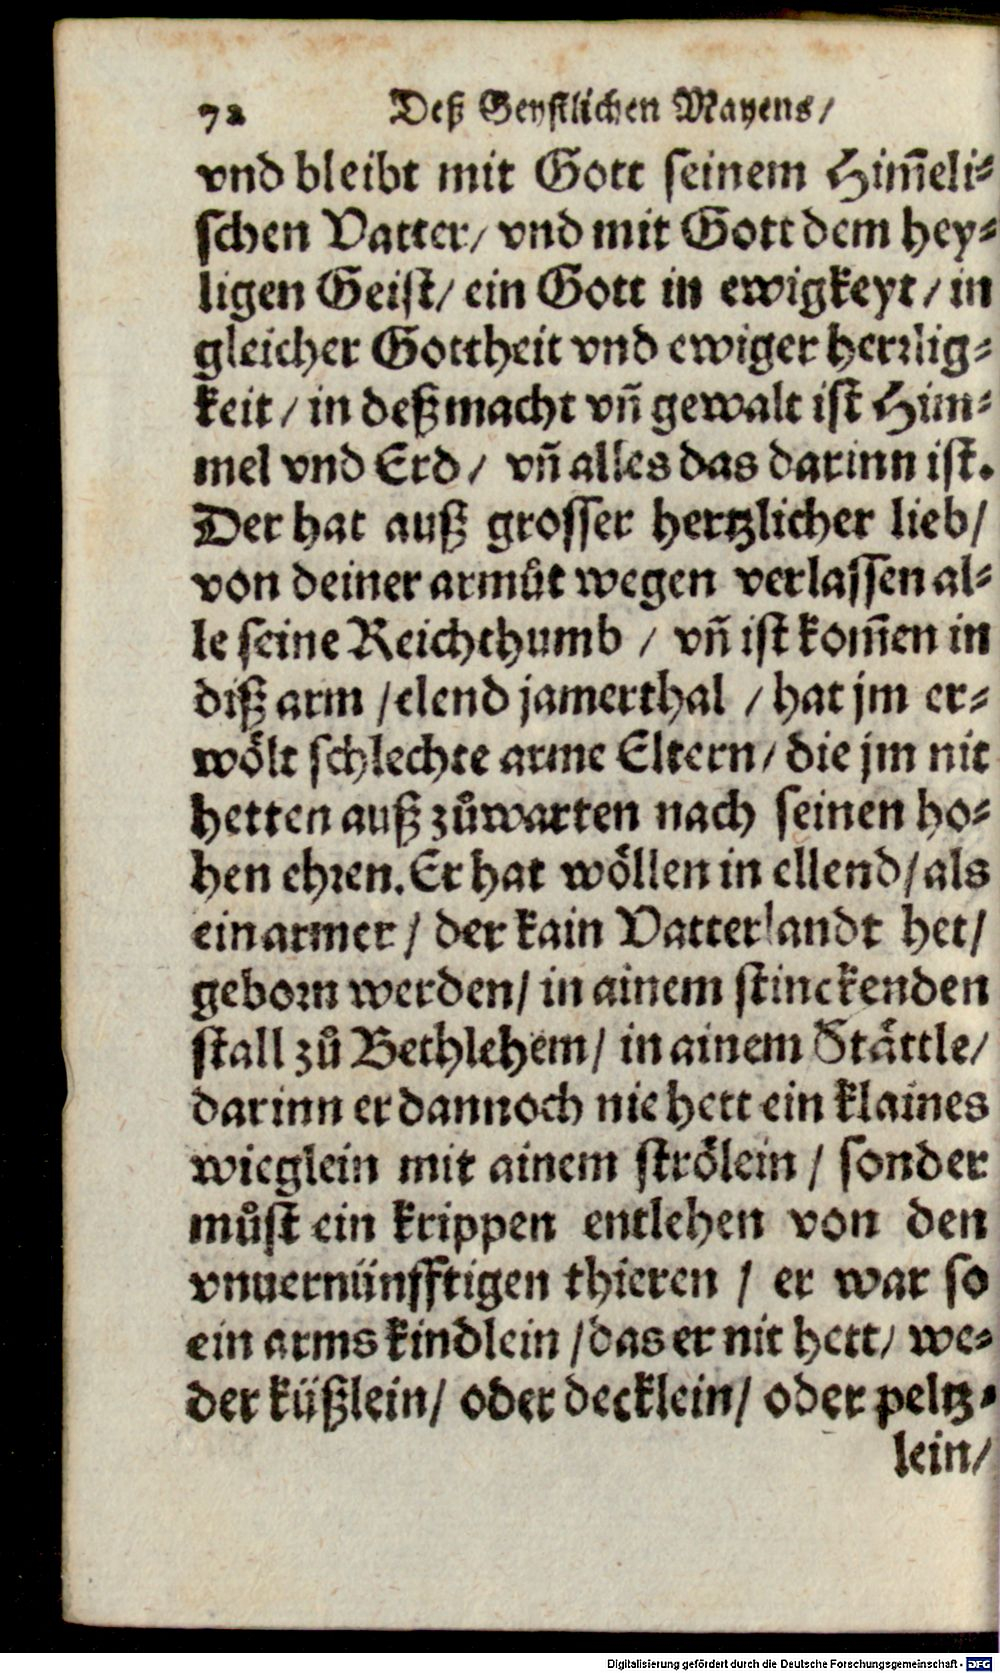 72 Deß Geystlichen Mayens/
vnd bleibt mit Gott seinem Him̃eli-
schen Vatter/ vnd mit Gott dem hey-
ligen Geist/ ein Gott in ewigkeyt/ in
gleicher Gottheit vnd ewiger herrlig-
keit/ in deß macht vñ gewalt ist Him-
mel vnd Erd/ vñ alles das darinn ist.
Der hat auß grosser hertzlicher lieb/
von deiner armůt wegen verlassen al-
le seine Reichthumb / vñ ist kom̃en in
diß arm /elend jamerthal / hat jm er-
wölt schlechte arme Eltern/ die jm nit
hetten auß zůwarten nach seinen ho-
hen ehren. Er hat wöllen in ellend/ als
ein armer/ der kain Vatterlandt het/
geborn werden/ in ainem stinckenden
stall zů Bethlehem/ in ainem Stättle/
darinn er dannoch nie hett ein klaines
wieglein mit ainem strölein/ sonder
můst ein krippen entlehen von den
vnuernünfftigen thieren / er war so
ein arms kindlein /das er nit hett/ we-
der küßlein/ oder decklein/ oder peltz-
lein/
Digitalisierung gefördert durch die Deutsche Forschungsgemeinschaft - DFG